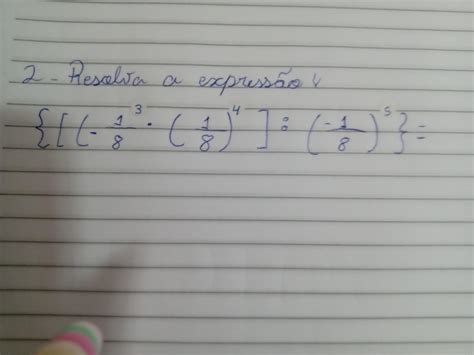 2 - Resolva a expressão
{[(-1/8³ · (1/8)⁴] ÷ (-1/8)⁵}=